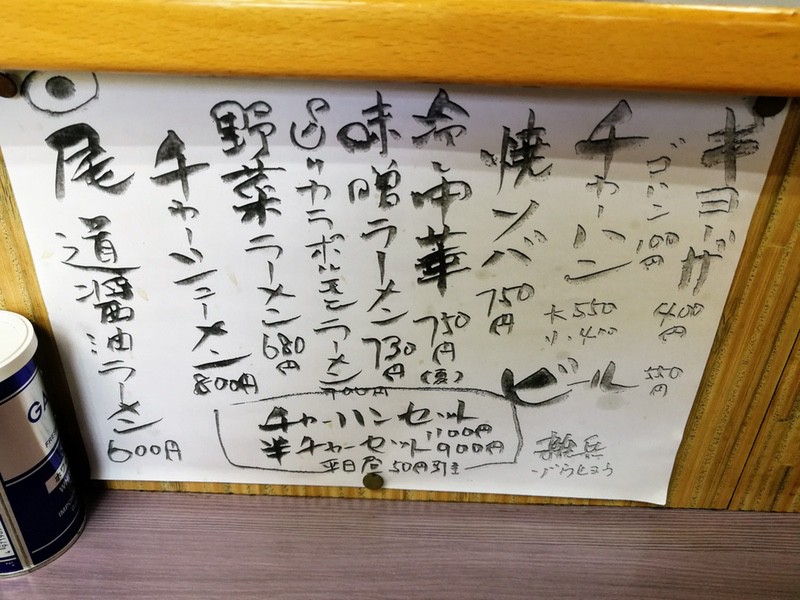 ギョーザ 400円
ゴハン 100円
チャーハン 大550 小400
ビール 550円
焼ソバ 750円
冷し中華 750円(夏)
味噌ラーメン 730円
野菜ラーメン 680円
チャーシューメン 800円
◎尾道醤油ラーメン 600円
チャーハンセット 1100円
半チャーセット 900円
平日昼 50円引き
ぶらひょう
GA